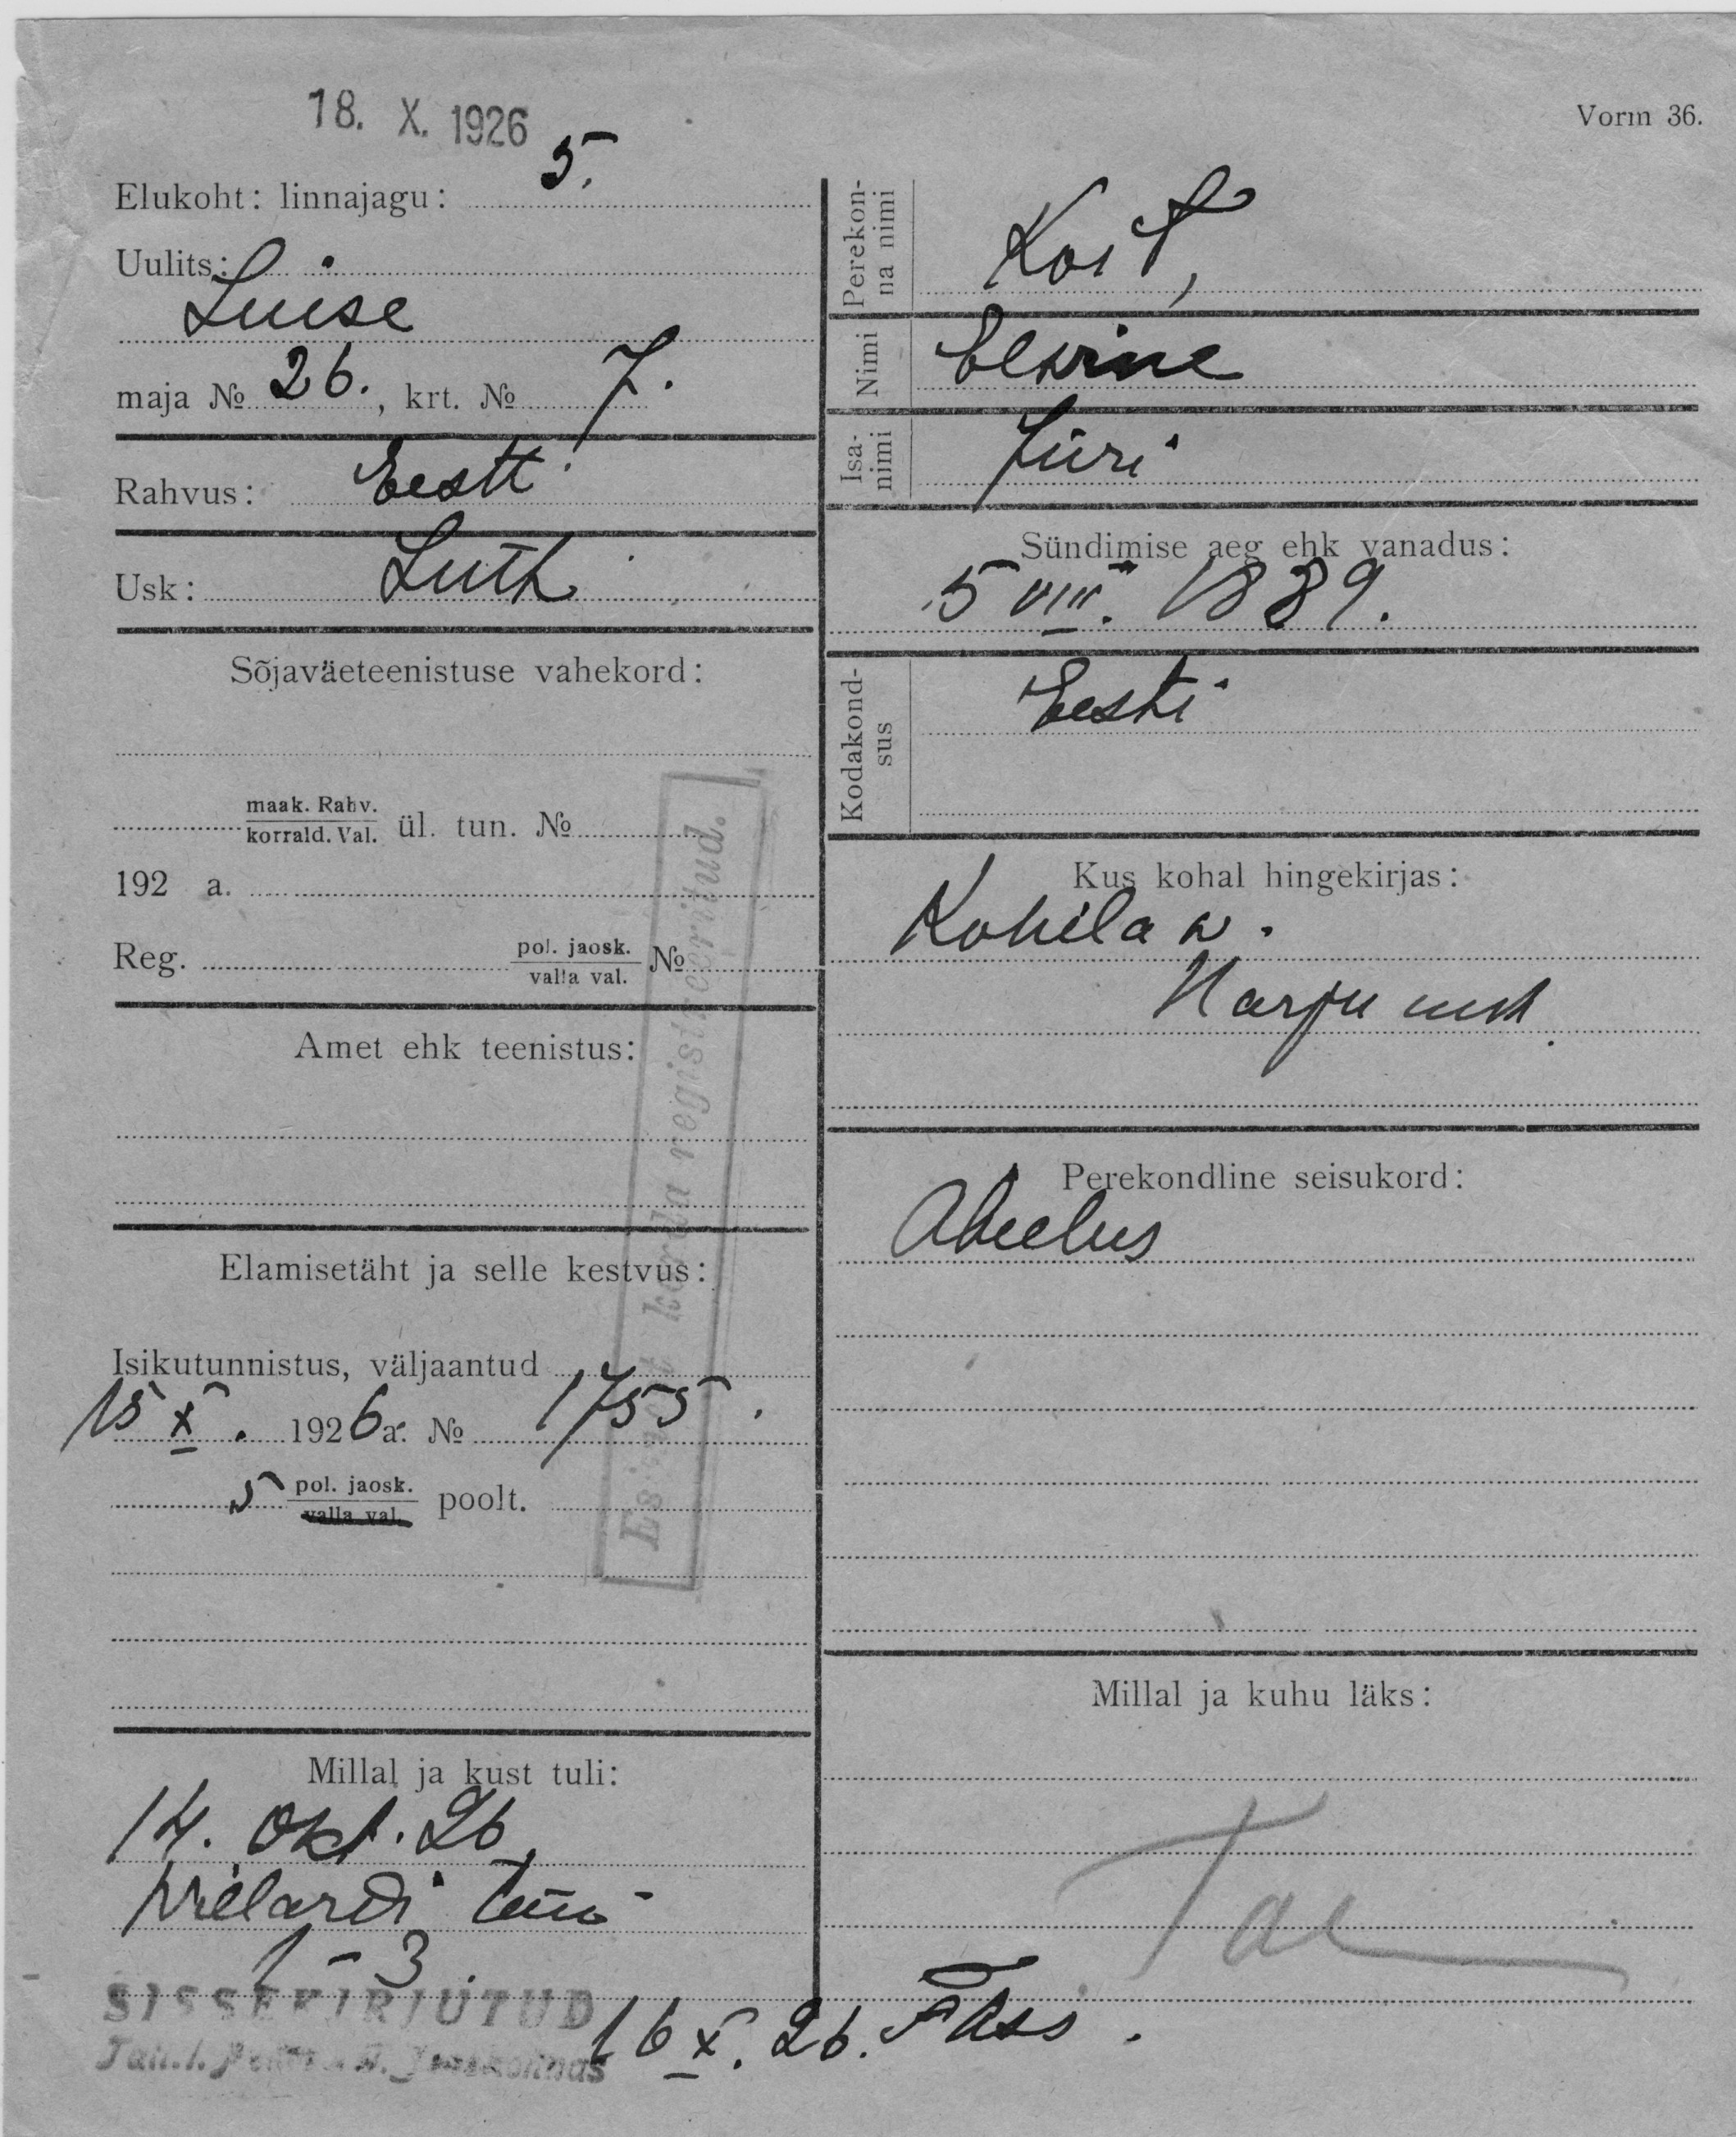 18. X. 1926
Vorm 36.
Elukoht: linnajagu: 5.
Uulits:
Luise
maja № 26., krt. № 7.
Rahvus: Eesti
Usk: Luth
Sõjaväeteenistuse vahekord:
maak. Rahv.
korrald. Val. ül. tun. №
192 a.
Reg. pol. jaosk. №
valla val.
Amet ehk teenistus:
Elamisetäht ja selle kestvus:
Isikutunnistus, väljaantud
15 X. 1926 a. № 1755.
5 pol. jaosk. poolt.
valla val.
Esimest korda registreeritud.
Millal ja kust tuli:
14. Okt. 26.
1 – 3.
SISSEKIRJUTUD
16 X. 26.
Perekonna nimi
Koit,
Nimi
Elwine
Isanimi
Jüri
Sündimise aeg ehk vanadus:
5 VIII. 1889.
Kodakondsus
Eesti
Kus kohal hingekirjas:
Kohila w.
Harju mk.
Perekondline seisukord:
Abielus
Millal ja kuhu läks: